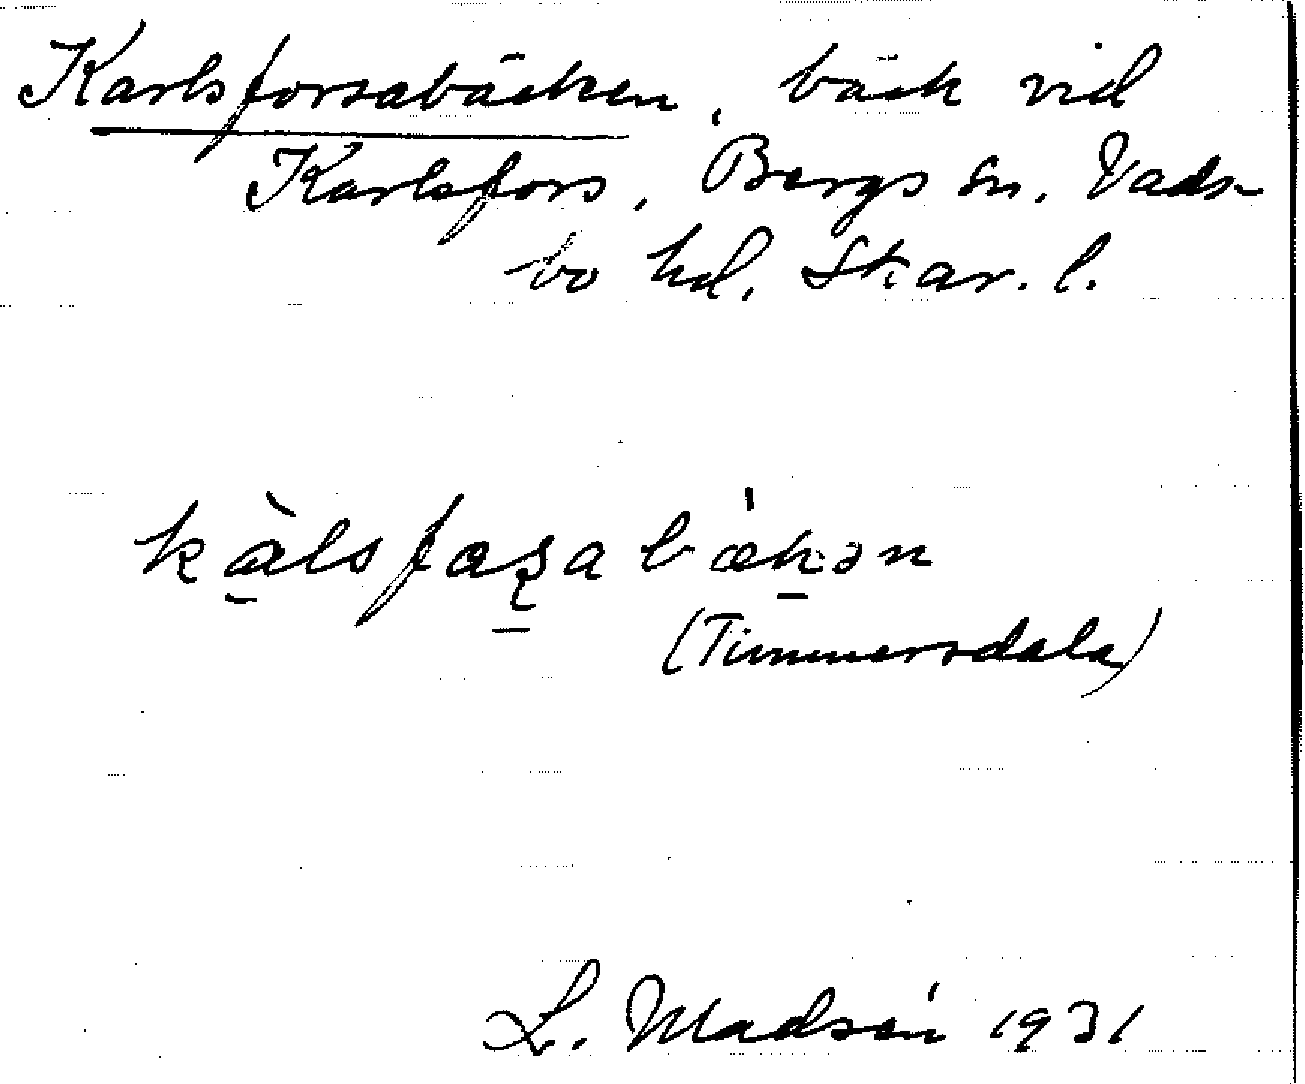 Karlsforsabäcken, bäck vid
Karlsfors, Bergs sn. Vads-
bo hd. Skar. l.
kàlsfaʂabækən
(Timmersdala)
L. Madsén 1931